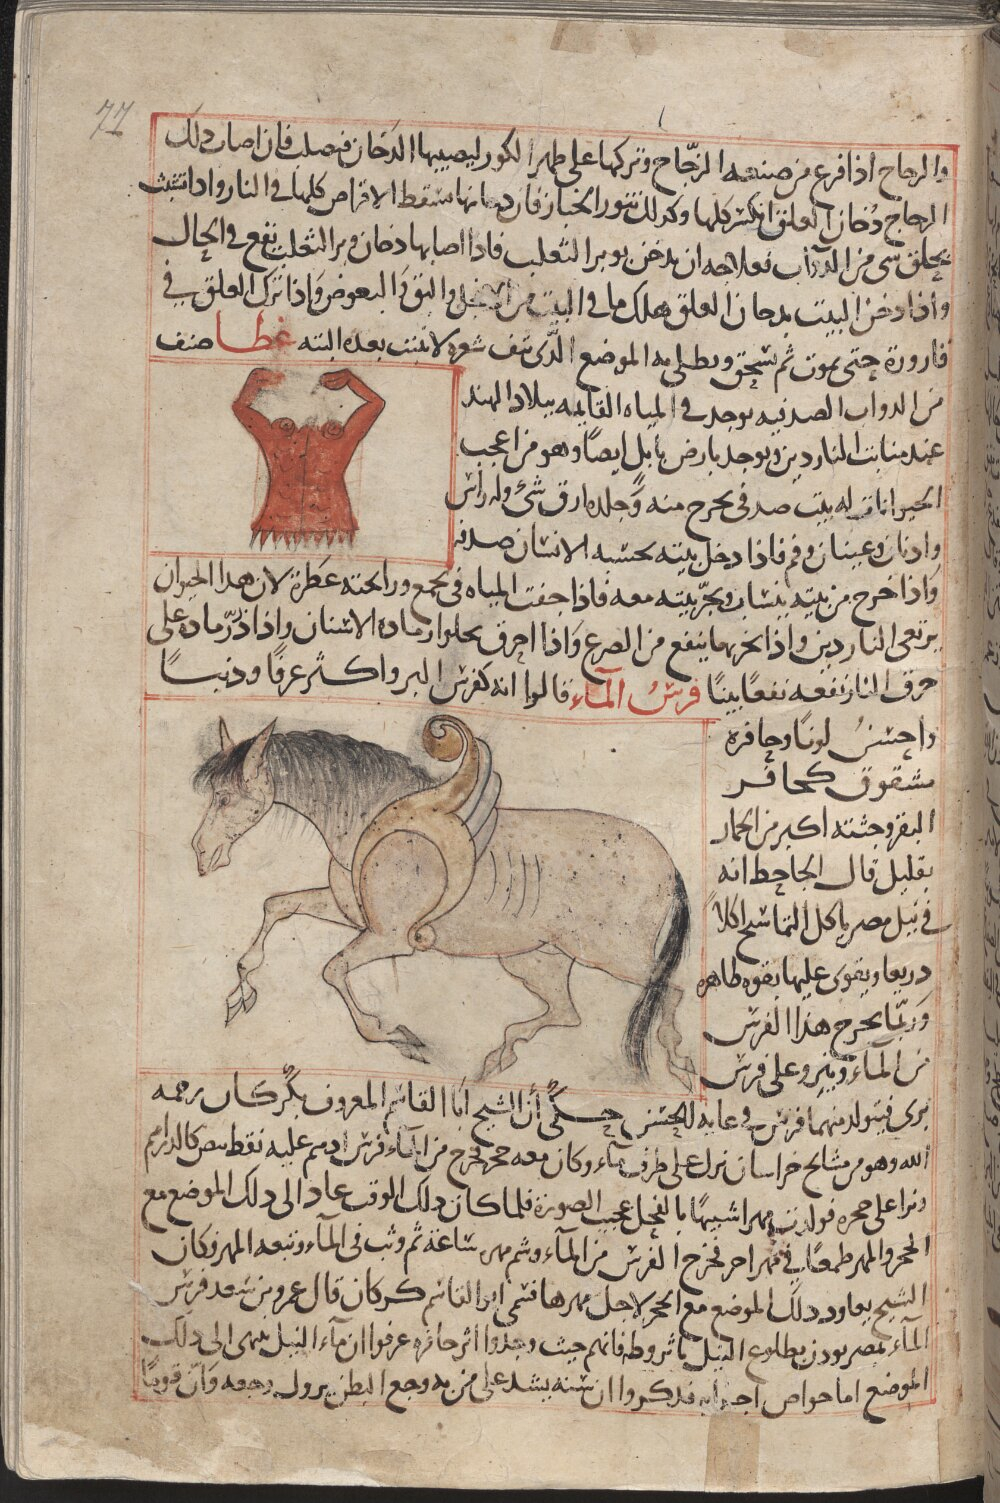 77
والزجاج اذا فرغ من صنعة الزجّاج وتركها على ظهر الكور ليصيبها الدخان فيصلب فان اصاب ذلك
الزجاج دُخان العلق انكسر كلها وكذلك تنور الخباز فان دخانها تسقط الاقراص كلها في النار واذا تشبث
بحلق شي من الدوآب فعلاجه ان يدخن بوبر الثعلب فاذا اصابها دخان وبر الثعلب نفع في الحال
واذا دخن البيت بدخان العلق هلك ما في البيت من والبق والبعوض واذا ترك العلق في
قارورة حتى يموت ثم يسحق ويطلى به الموضع الذى نتف شعره لا ينبت بعده البته غطا صنف
من الدواب الصدفيه يوجد في المياه القايمه ببلاد الهند
عند منابت الناردين ويوجد بارض بابل ايضًا وهو من اعجب
الحيوانات له بيت صدفى يخرج منه وجلده ارق شئ وله راس
واذنان وعينان وفم فاذا دخل بيته يحسبه الانسان صدفه
واذا خرج من بيته ينساب ويجرّ بيته معه فاذا جفت المياه في تجمع ورائحته عطرة لان هذا الحيوان
يرتعى الناردين واذا بخر بها ينفع من الصرع واذا احرق يجلو ارماده الاسنان واذا ذرّ رماده على
حرق النار نفعه نفعًا بينًا فرسُ المآء قالوا انه كفرس البر واكثر عرفًا وذنبًا
واحسنُ لونًا وحافره
مشقوق كحافر
البقر وجثته اكبر من الحمار
بقليل قال الجاحظ انه
في نيل مصر ياكل التماسيح اكلاً
ذريعا ويقوى عليها بقوه ظاهره
وربّما يخرج هذا الفرس
من المآء وينزو على فرس
برى فيتولد منهما فرس في غايه الحسن حكى أن الشيخ ابا القاسم المعروف بكُركان رحمه
الله وهو من مشايخ خراسان نزل على طرف مآء وكان معه حجر فخرج من المآء فرس ادهم عليه نقط بيض كالدراهم
ونزا على حجره فولدت مهرا شبيهًا بالفحل عجيب الصورة فلما كان ذلك الوقت عاد الى ذلك الموضع مع
الحجر والمهر طمعًا في مهر اخر فخرج الفرس من المآء وشم مهره ساعة ثم وثب في المآء وتبعه المهر فكان
الشيخ يعاود ذلك الموضع مع الحجر لاجل مهرها فسمى ابو القاسم كركان قال عمرو بن سعد فرس
المآء بمصر يوذن بطلوع النيل باثر وطه فانهم حيث وجدوا اثر حافره عرفوا ان مآء النيل ينتهى الى ذلك
الموضع اما خواص اجزايه فذكروا ان سنه يشد على من به وجع البطن يزول وجعه وان قومًا